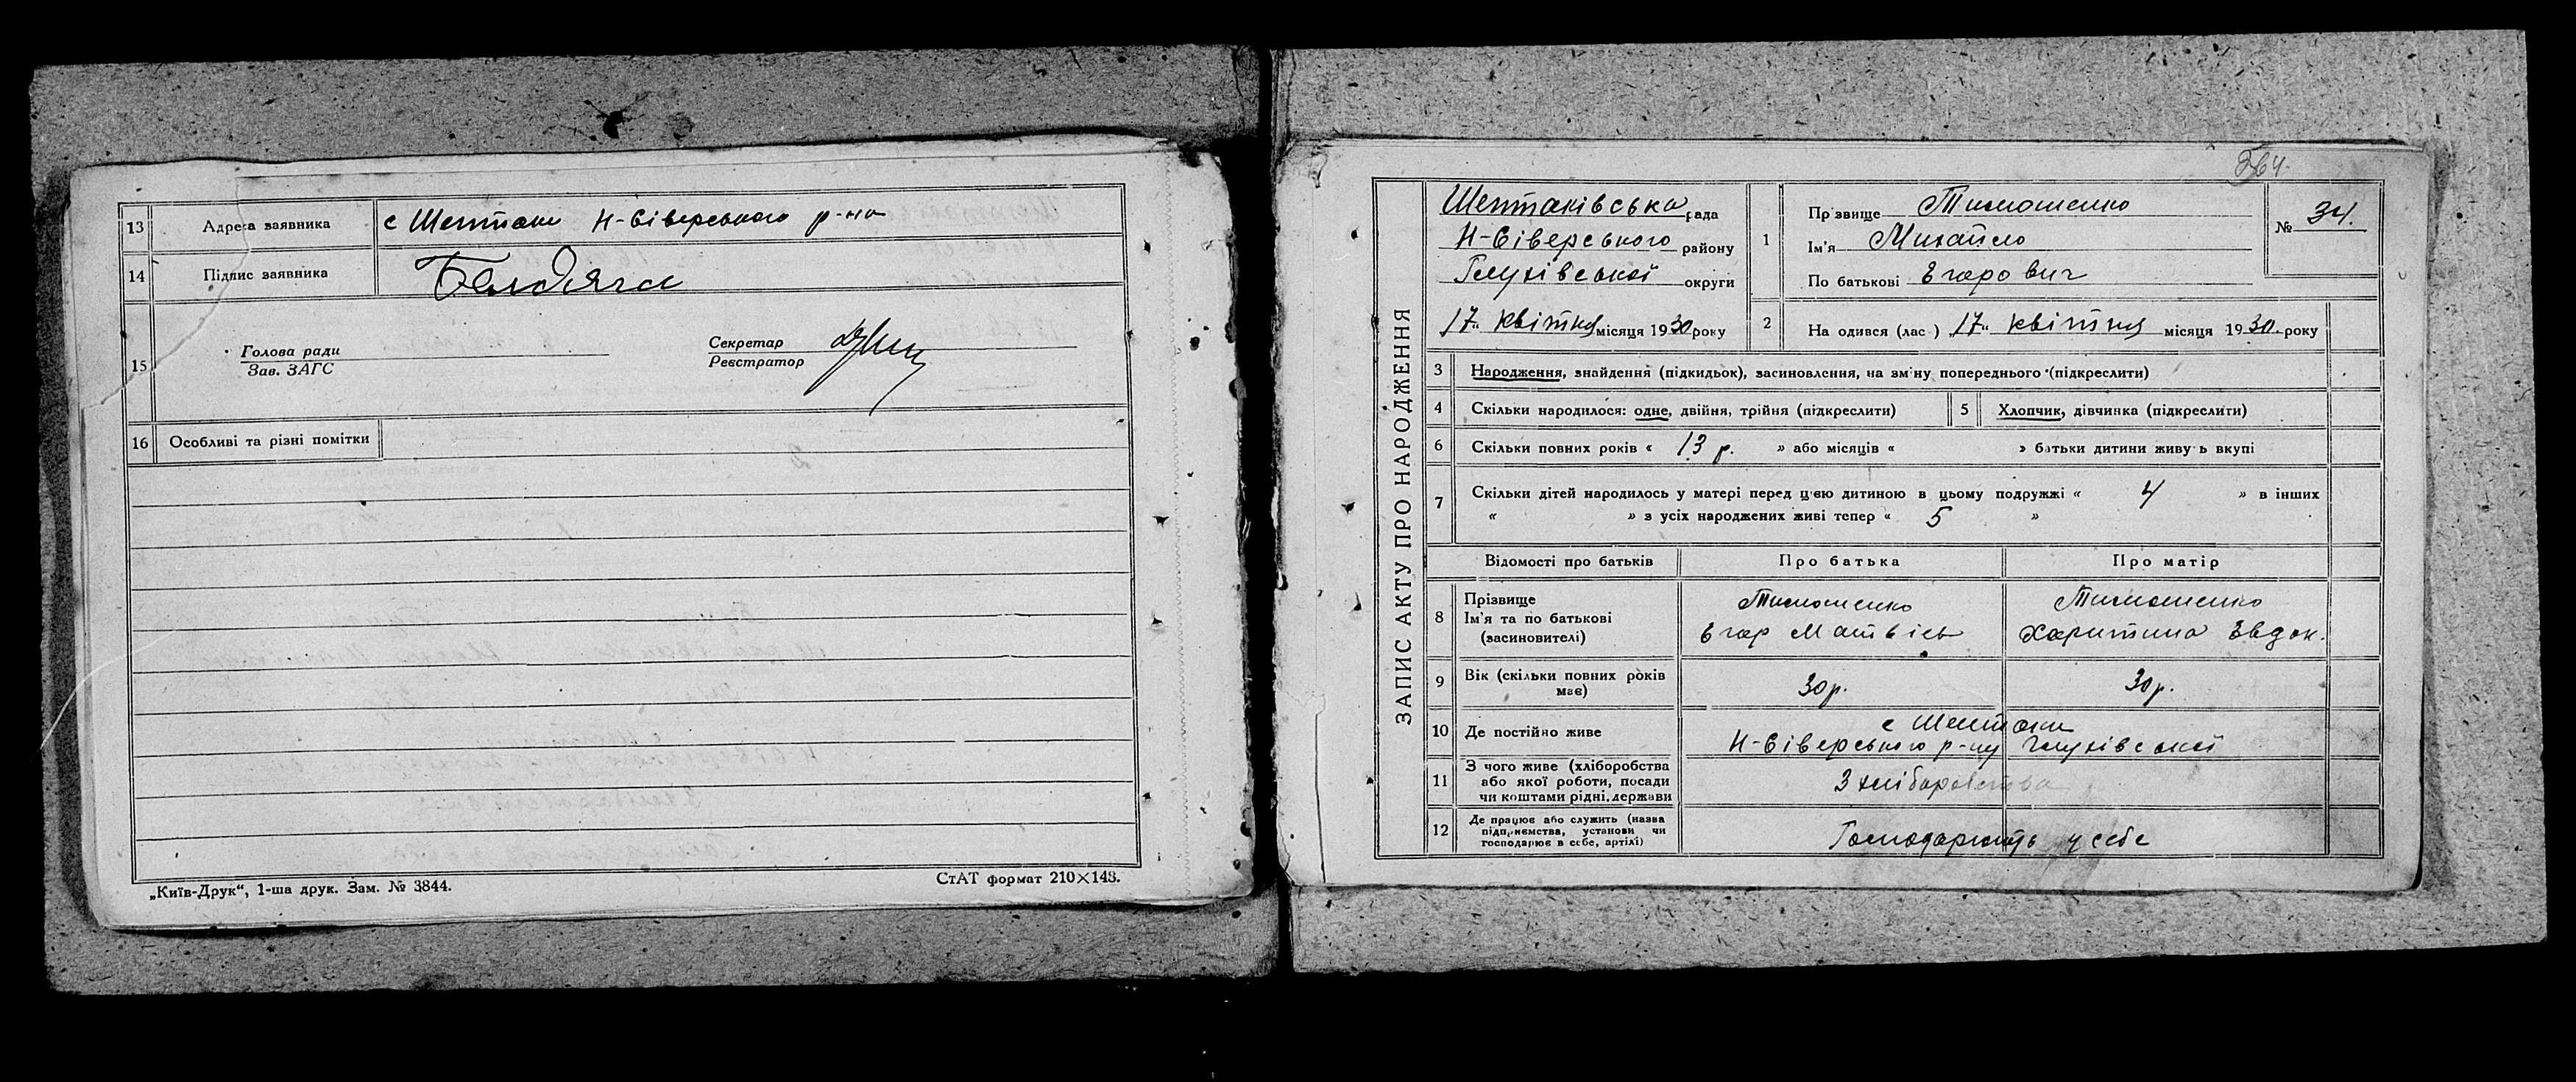 13 Адреса заявника с Шептаки Н-Сіверського р-на
14 Підпис заявника
15 Голова ради Секретар
Зав. ЗАГС Реєстратор
16 Особливі та різні помітки
„Київ-Друк“, 1-ша друк. Зам. № 3844.
СтАТ формат 210×148.
364.
ЗАПИС АКТУ ПРО НАРОДЖЕННЯ
Шептаківська рада
Н-Сіверського району
Глухівської округи
17 квітня місяця 1930 року
1 Прізвище Тимошенко
Ім'я Михайло
По батькові Егорович
№ 34.
2 На одився (лас ) 17 квітня місяця 1930 року
3 Народження, знайдення (підкидьок), засиновлення, на зміну попереднього (підкреслити)
4 Скільки народилося: одне, двійня, трійня (підкреслити) 5 Хлопчик, дівчинка (підкреслити)
6 Скільки повних років « 13 р. » або місяців « » батьки дитини живуть вкупі
7 Скільки дітей народилось у матері перед цією дитиною в цьому подружжі « 4 » в інших
« » з усіх народжених живі тепер « 5 »
Відомості про батьків Про батька Про матір
8 Прізвище Тимошенко Тимошенко
Ім'я та по батькові Егор Матвієв Харитина Евдок.
(засиновителі)
9 Вік (скільки повних років має) 30 р. 30 р.
10 Де постійно живе с Шептаки
Н-Сіверського р-ну Глухівської
11 З чого живе (хліборобства
або якої роботи, посади З хліборобства
чи коштами рідні, держави
12 Де працює або служить (назва
підприємства, установи чи Господарюють у себе
господарює в себе, артілі)